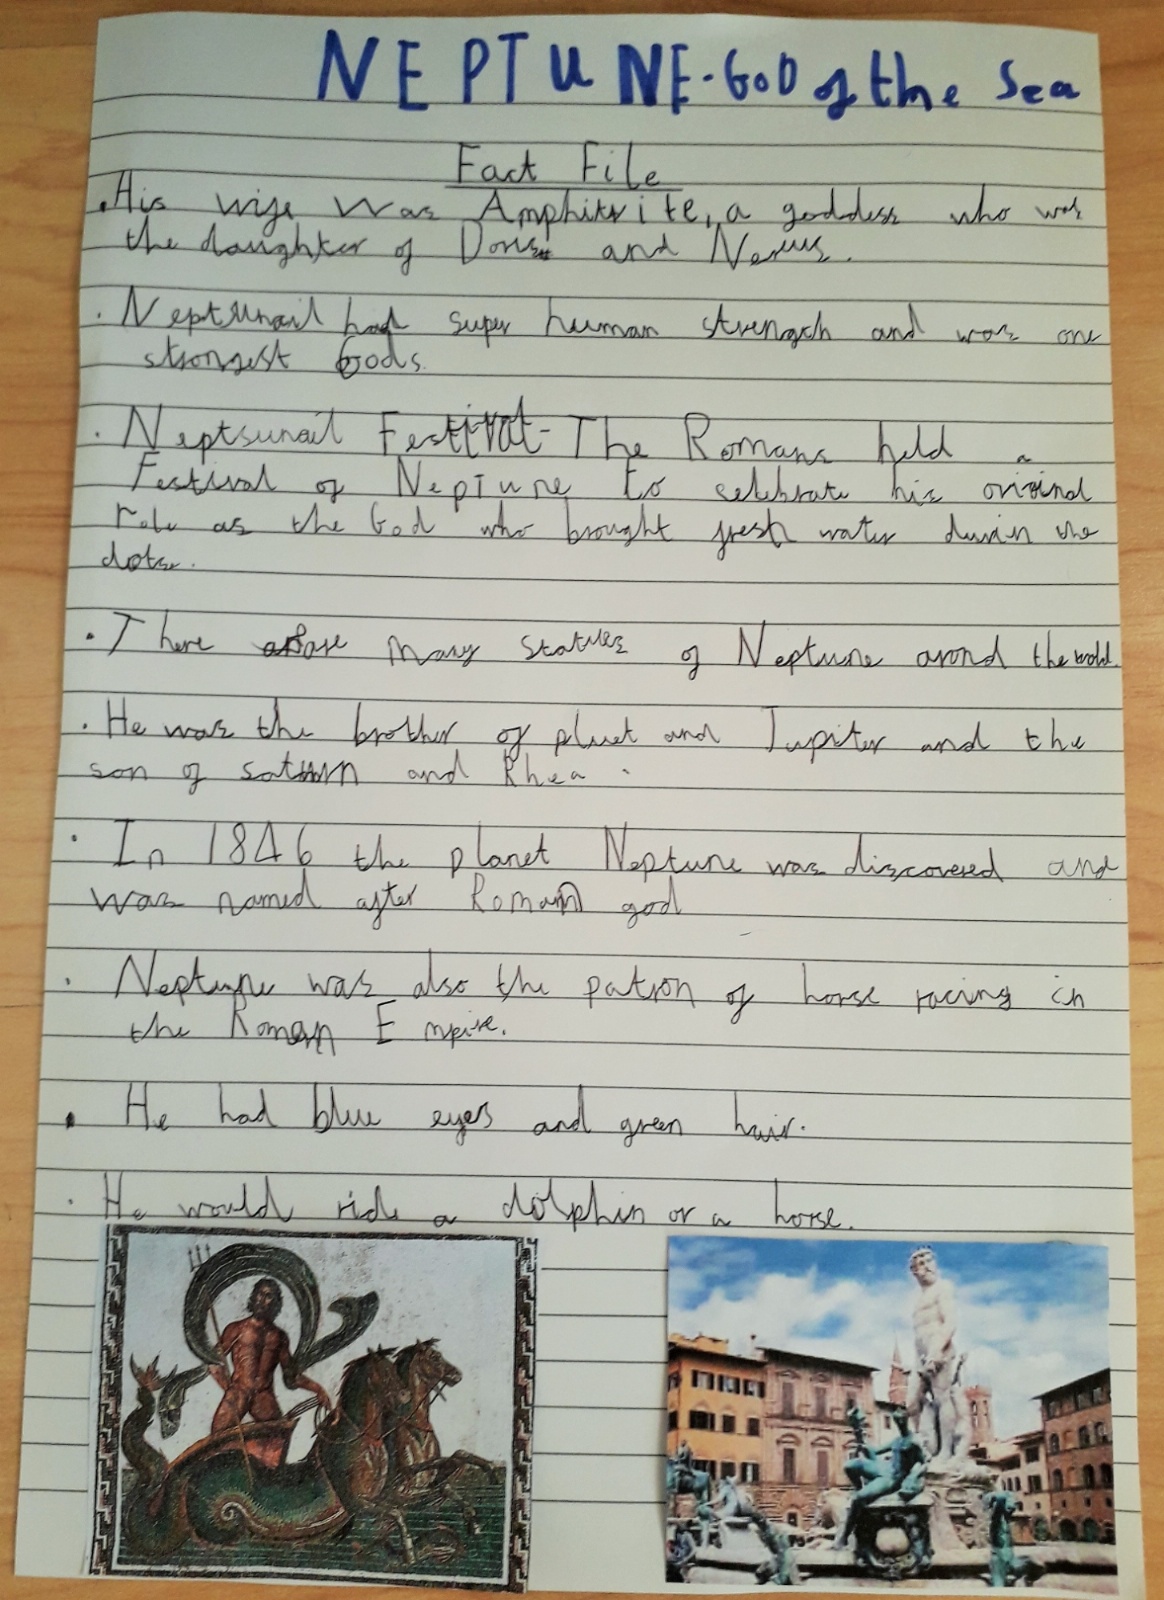 NEPTUNE-GOD of the Sea
Fact File
. His wife was Amphitrite, a goddess who was
the daughter of Doris and Nereus.
. had super human strength and was one
strongest Gods.
. Neptsunail Festival- The Romans held a
Festival of Neptune to celebrate his original
role as the God who brought fresh water durin the
. There are many statues of Neptune arond the
. He was the brother of and Jupiter and the
son of saturn and Rhea.
. In 1846 the planet Neptune was discovered and
was named after Roman god
. Neptune was also the patron of horse racing in
the Roman Empire.
. He had blue eyes and green hair.
. He would ride a dolphin or a horse.